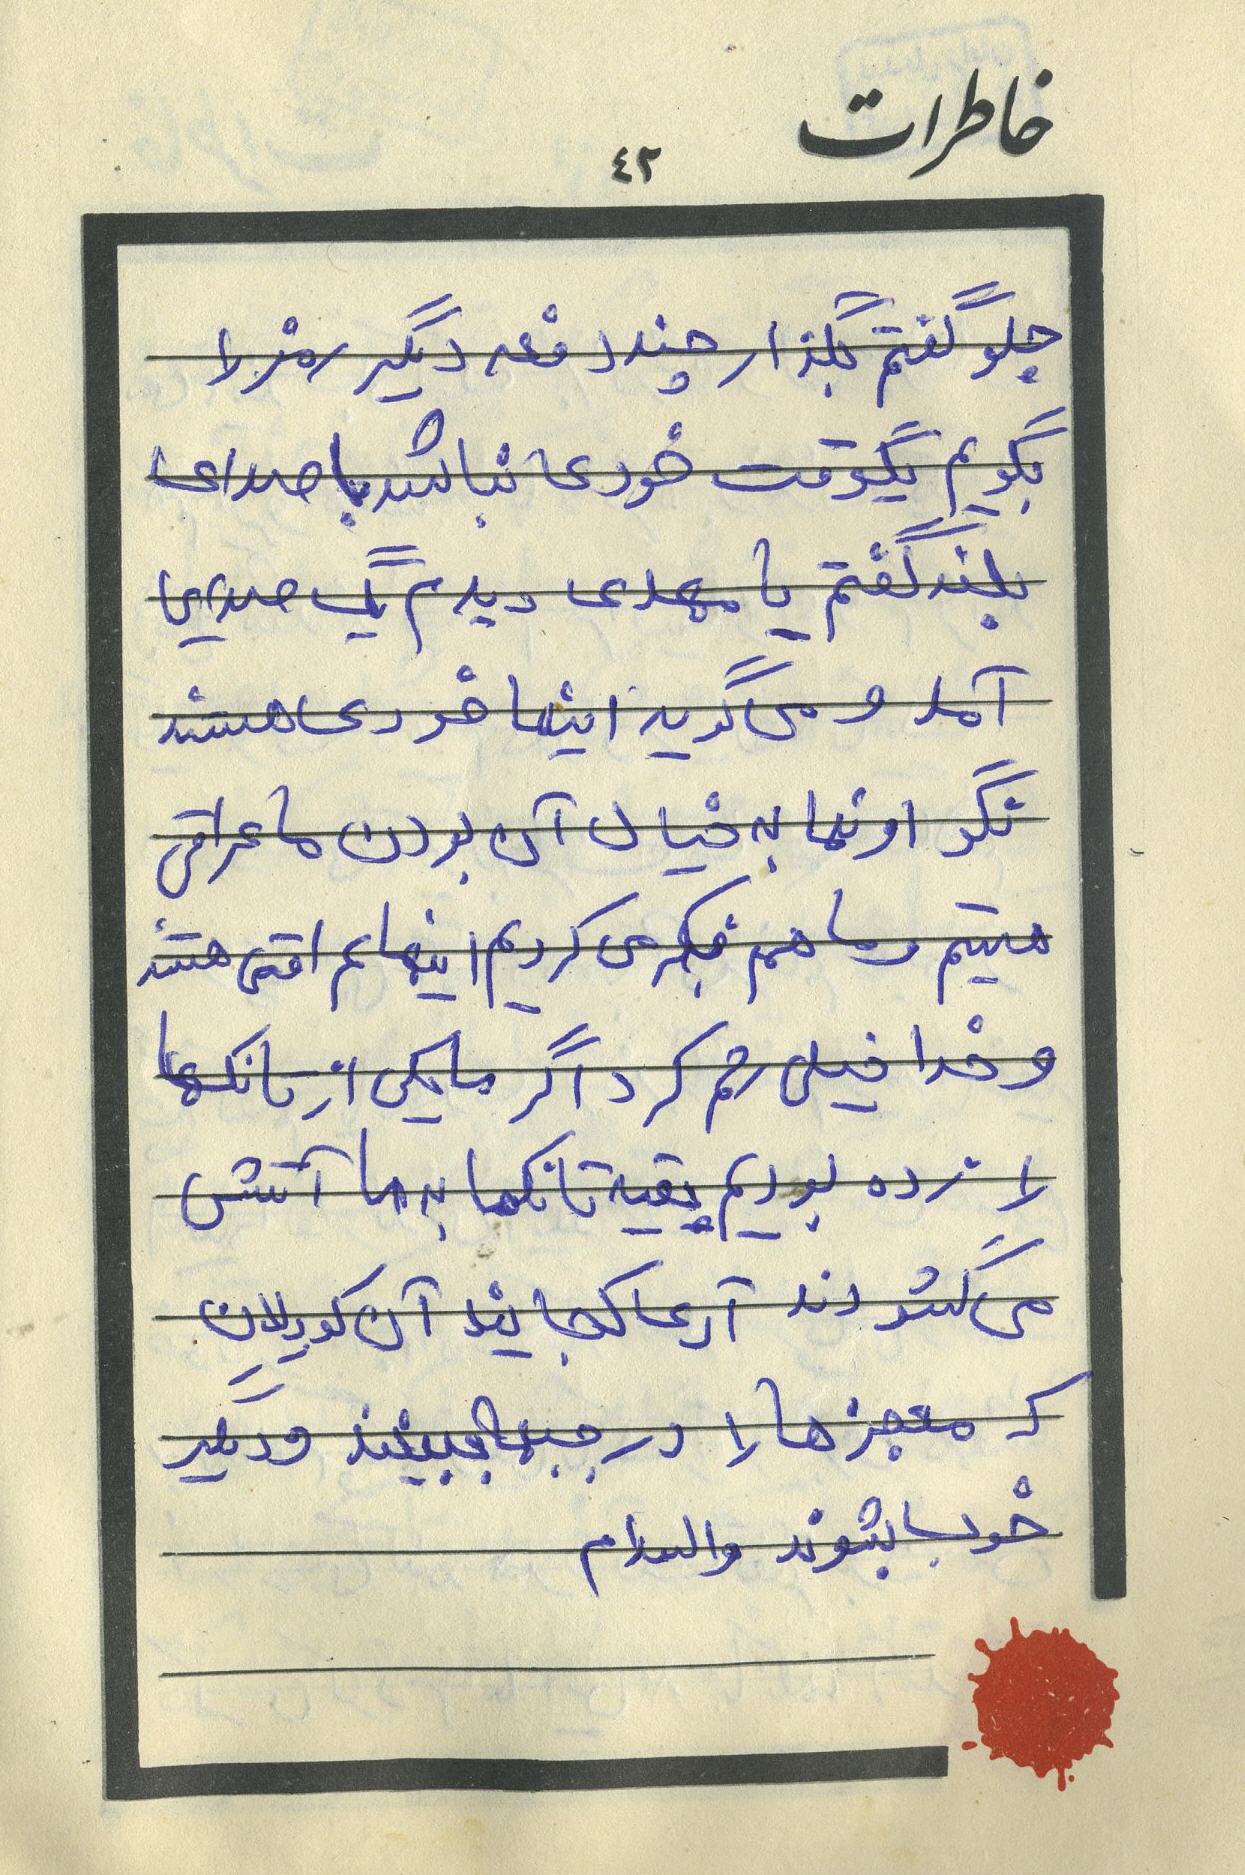 خاطرات
٤٢
جلو گفتم بگذار چند دفعه دیگر رمز را
بگویم یکوقت خودی نباشد با صدای
بلند گفتم یا مهدی دیدم یک صدایی
آمد و می گوید اینها خودی هستند
نگو اونها به خیال آن بودن ما عراقی
هستیم و ما هم فکر می کردیم اینها عراقی هستند
و خدا خیلی رحم کرد اگر ما یکی از تانکها
را زده بودیم بقیه تانکها به ما آتش
می گشودند آری کجایند آن کوردلان
که معجزه‌ها را در جبهه ببینند و دیگر
خوب بشوند والسلام